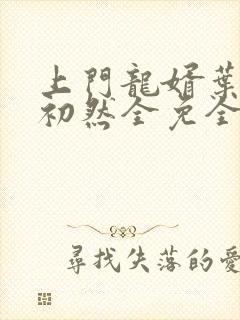 上門龍婿葉
初然全免全
尋找失落的愛